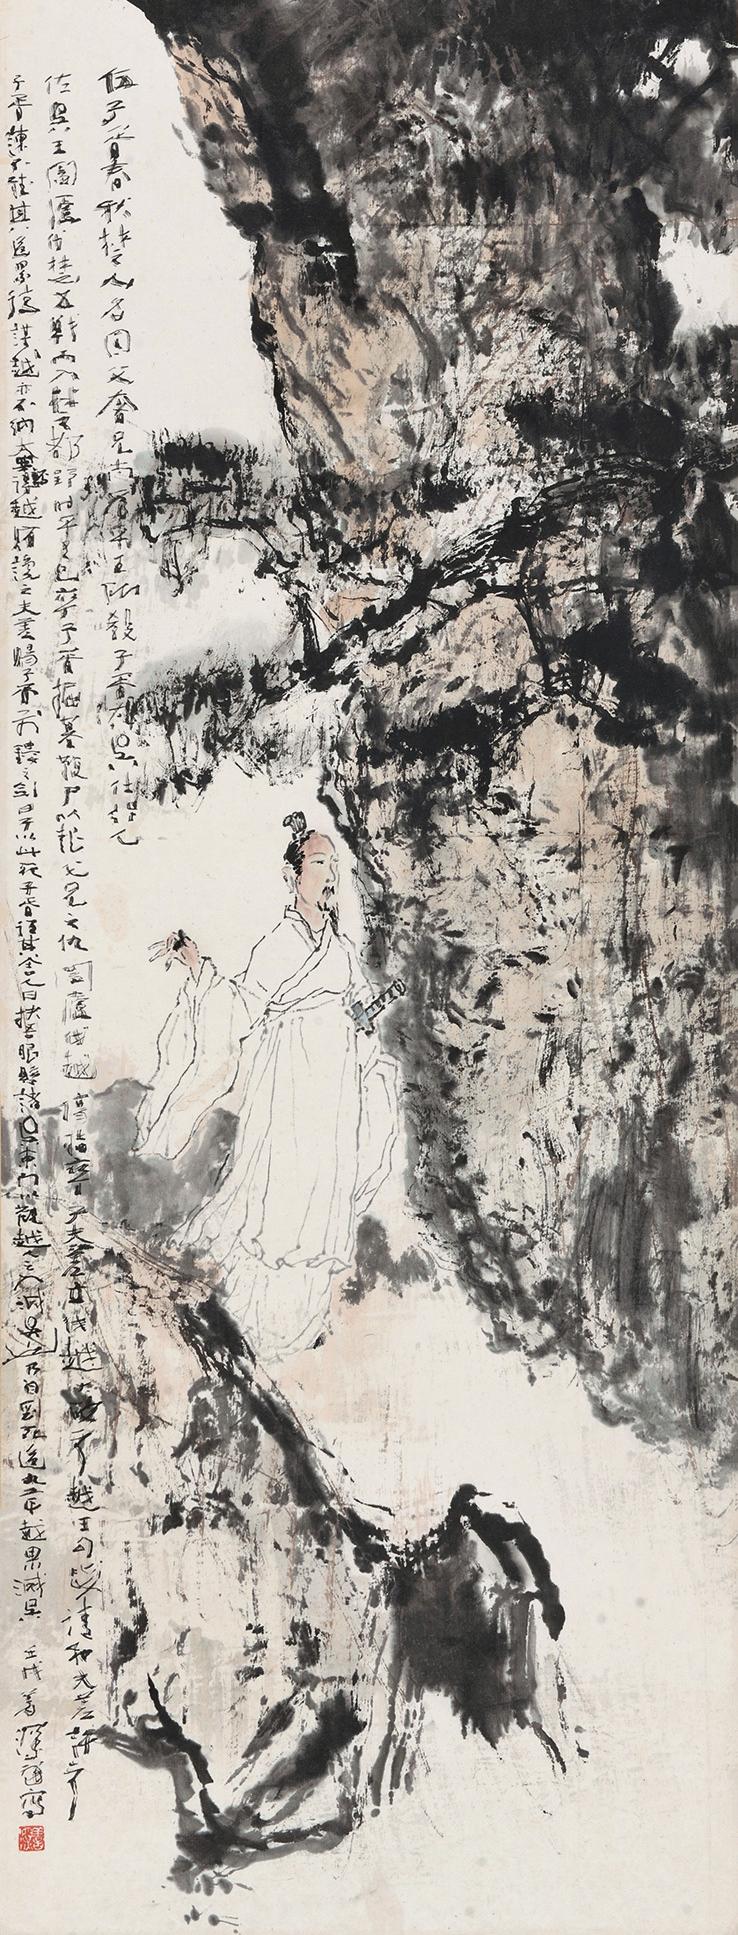 伍子胥春秋楚人名員父奢兄尚居平王所殺子胥奔吳仕吳
佐吳王闔廬伐楚五戰而入郢都時平王已卒子胥掘墓鞭尸以報父兄之仇闔廬伐越傷指卒子夫差立伐越大破之越王勾踐請和夫差許之
子胥諫不聽其後請越亦不納太宰受越賂讒之夫差賜子胥屬鏤之劍曰子以此死子胥謂其舍人曰抉吾眼懸諸吳東門以觀越之入滅吳也乃自剄死後九年越果滅吳 壬戌